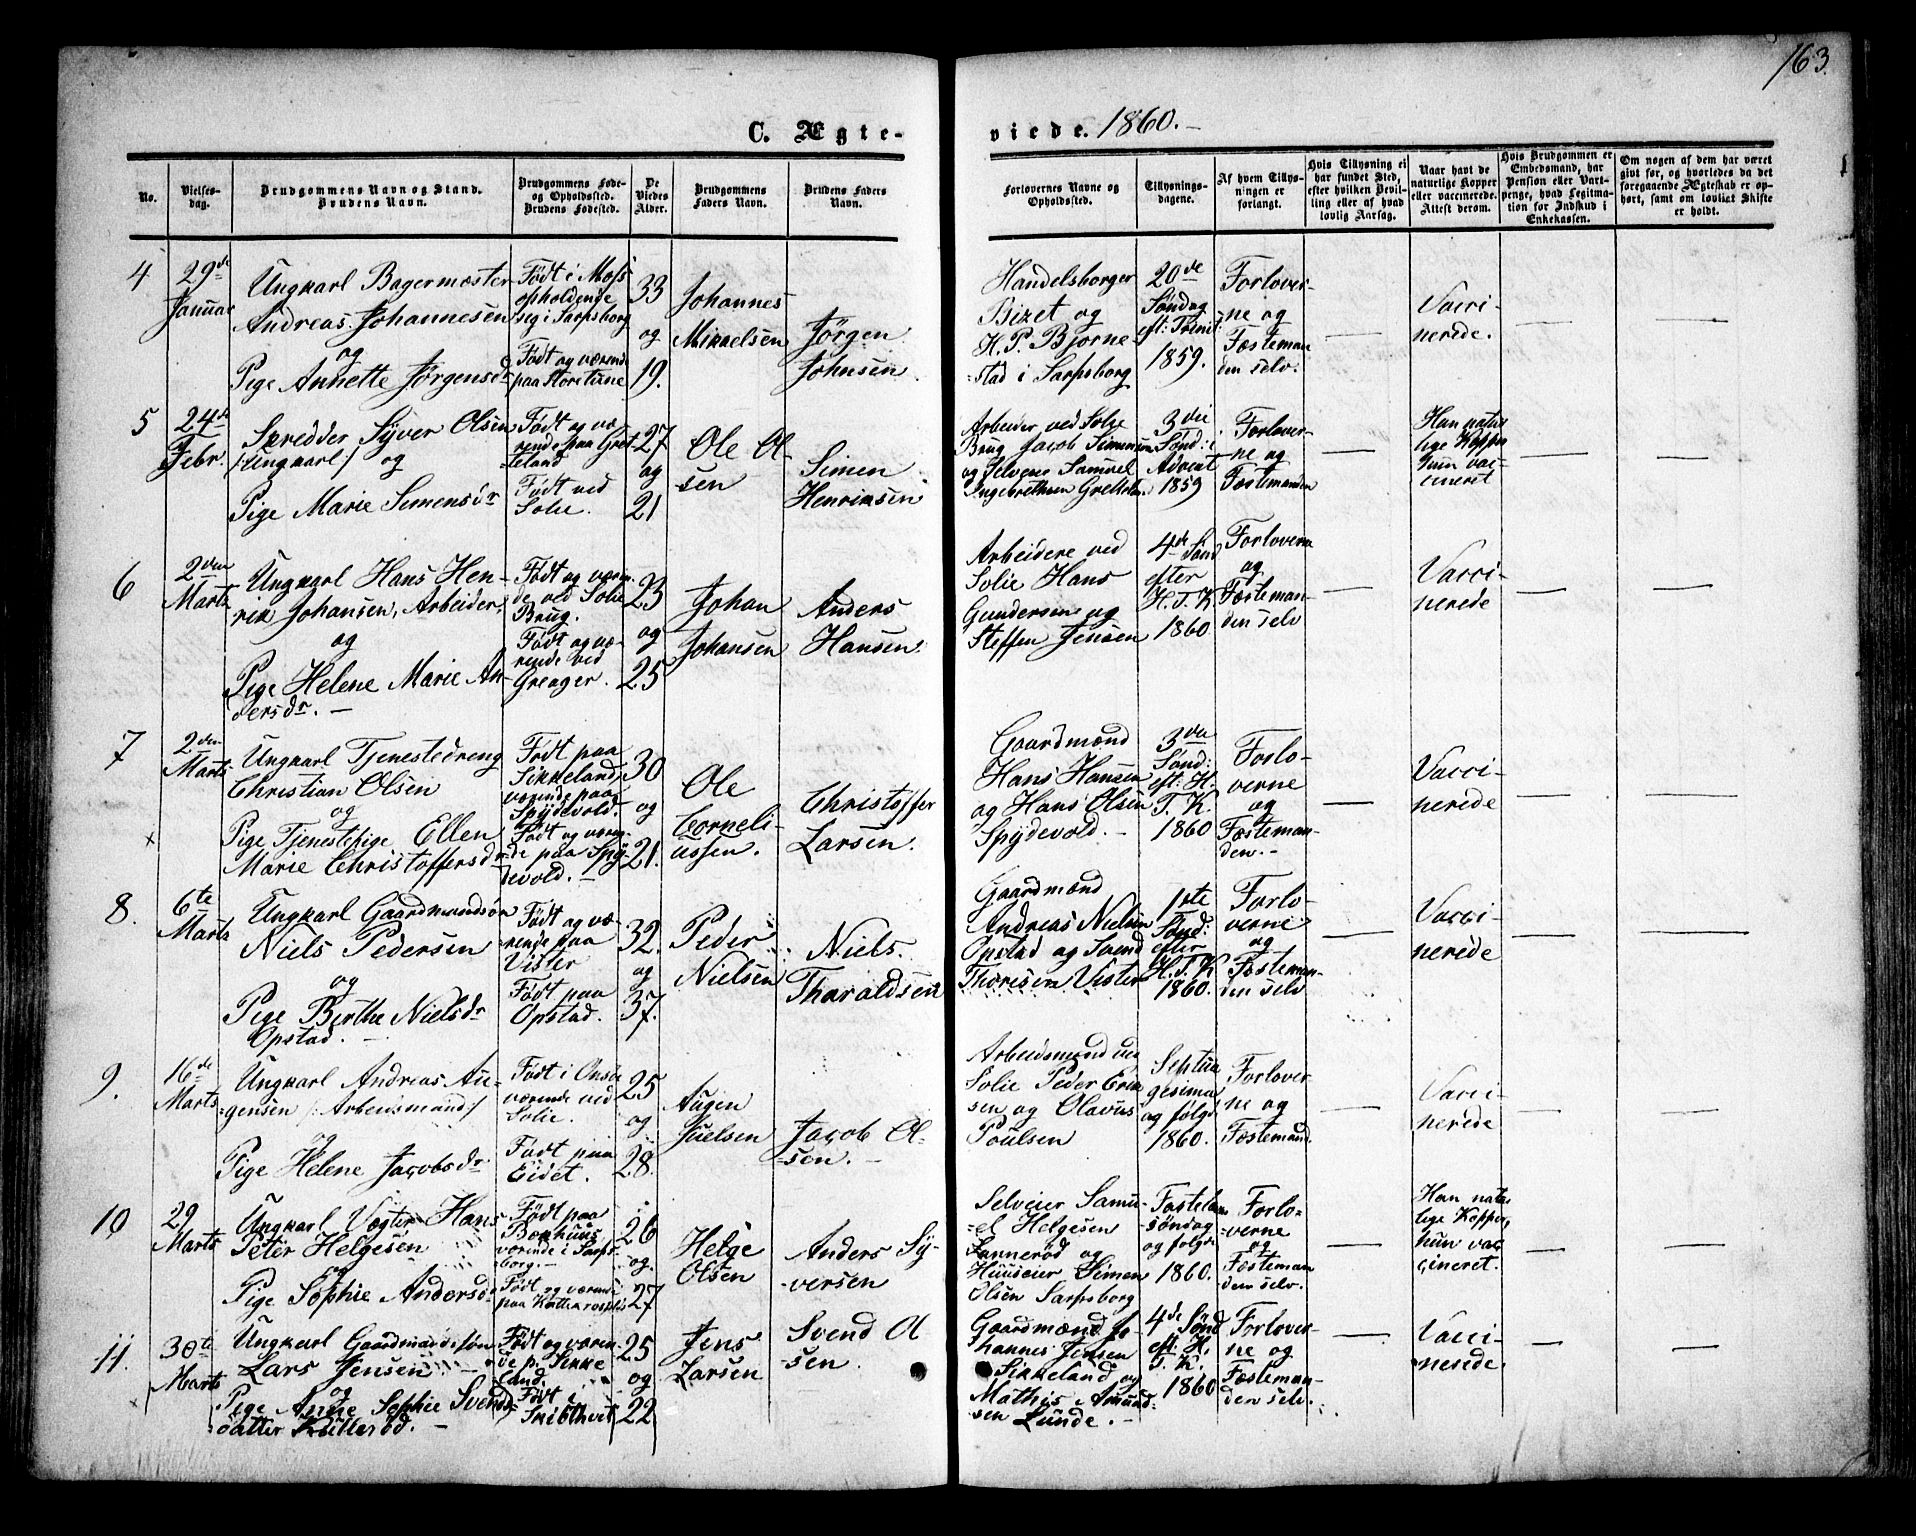 163.
C. Ægte- viede. 1860.-
No.
Vielses-
dag.
Brudgommens Navn og Stand.
Brudens Navn.
Brudgommens Føde-
og Opholdssted.
Brudens Fødested.
De
Viedes
Alder.
Brudgommens
Faders Navn.
Brudens Faders
Navn.
Forlovernes Navne og
Opholdssted.
Tillysnings-
dagene.
Af hvem Tillys-
ningen er
forlangt.
Hvis Tillysning ei
har fundet Sted,
efter hvilken Bevil-
ling eller af hvad
lovlig Aarsag.
Naar havt de
naturlige Kopper
eller vaccinerede.
Attest derom.
Hvis Brudgommen er
Embedsmand, har
Pension eller Vart-
penge, hvad Legitima-
tion for Indskud i
Enkekassen.
Om nogen af dem har været
givt for, og hvorledes da det
foregaaende Ægteskab er op-
hørt, samt om lovligt Skifte
er holdt.
4
29de
Januar
Ungkarl Bagermester
Andreas Johannesen
og
Pige Annette Jørgensdr
Født i Moss
opholdende
sig i Sarpsborg
Født og værende
paa Storetune
33
og
19.
Johannes
Mikaelsen
Jørgen
Johnsen
Handelsborger
Bizet og
H. P. Bjorne-
stad i Sarpsborg
20de
Søndag
eft: Trinit:
1859.
Forlover-
ne og
Fæsteman
den selv
Vacci-
nerede.
5
24de
Febr.
Skredder Syver Olsen
/:Ungkarl:/ og
Pige Marie Simensdr
Født og væ-
rende paa Gret-
teland
Født ved
Solie.
27
og
21
Ole Ol-
sen
Simen
Henriksen
Arbeider ved Solie
Brug Jacob Simensen
og Selveier Samuel
Ingebrethsen
3die
Sønd: i
Advent
1859
Forlover-
ne og
Fæstemanden
Han natur
lige Kopper
hun vac-
cineret
6
2den
Marts
Ungkarl Hans Hen-
rik Johansen, Arbeider,
og
Pige Helene Marie An-
dersdr. -
Født og væren-
de ved Solie
Brug.
Født og væ-
rende ved
Greager.
23
og
25
Johan
Johansen
Anders
Hansen.
Arbeidere ved
Solie Hans
Gundersen og
Steffen Jensen
4de Sønd
efter
H. T. K.
1860
Forloverne
og
Fæsteman-
den selv
Vacci-
nerede
7
2den
Marts
Ungkarl Tjenestedreng
Christian Olsen
og
Pige Tjenestepige Ellen
Marie Christoffersdr
Født paa
Sikkeland,
værende paa
Spydevold.
Født og væren-
de paa Spy-
devold. -
30
og
21.
Ole
Corneli-
ussen.
Christoffer
Larsen.
Gaardmænd
Hans Hansen
og Hans Olsen
Spydevold. -
3die
Sønd:
eft: H.
T. K.
1860
Forlo-
verne
og
Fæsteman-
den. -
Vacci-
nerede
8.
6te
Marts
Ungkarl Gaardmandsøn
Niels Pedersen
og
Pige Berthe Nielsdr
Opstad. -
Født og væ-
rende paa
Vister
Født paa
Opstad.
32.
og
37.
Peder
Nielsen
Niels
Tharaldsen
Gaardmænd
Andreas Nielsen
Opstad og Svend
Thoresen Vister
1ste
Sønd:
efter
H. T. K
1860.
Forlo-
verne
og
Fæsteman-
den selv
Vacci-
nerede
9.
16de
Marts
Ungkarl Andreas Au-
gensen /:Arbeidsmand:/
og
Pige Helene Jacobsdr
Født i Onsø
værende ved
Solie.
Født paa
Eidet.
25
og
28.
Augen
Juelsen
Jacob Ol-
sen. -
Arbeidsmænd ved
Solie Peder Erik
sen og Olavus
Poulsen
Septua
gesima
og følgd
1860.
Forlover-
ne og
Fæstemand.
Vacci-
nerede
10
29
Marts
Ungkarl Vægter Hans
Peter Helgesen
og
Pige Sophie Andersd
Født paa
værende i Sarps-
borg. -
Født og værende
paa
26
og
27
Helge
Olsen
Anders Sy-
versen
Selveier Samu-
el Helgesen
og
Huuseier Simen
Olsen Sarpsborg
Fastelavns
søndag
og følgd
1860.
Forlo-
verne
og
Fæsteman
den selv.
Han natur
lige Kopper,
hun vac
cineret.
11.
30te
Marts
Ungkarl Gaardmandssøn
Lars Jensen
og
Pige Anne Sophie Svends-
datter
Født og væren-
de p. Sikke
land.
Født i
Skibthvet
25
og
22
Jens
Larsen
Svend Ol
sen.
Gaardmænd Jo-
hannes Jensen
Sikkeland og
Mathis Amund-
sen Lunde. -
4de Sønd
eft: H.
T. K.
1860
Forlover-
ne og
Fæsteman-
den selv.
Vacci-
nerede.